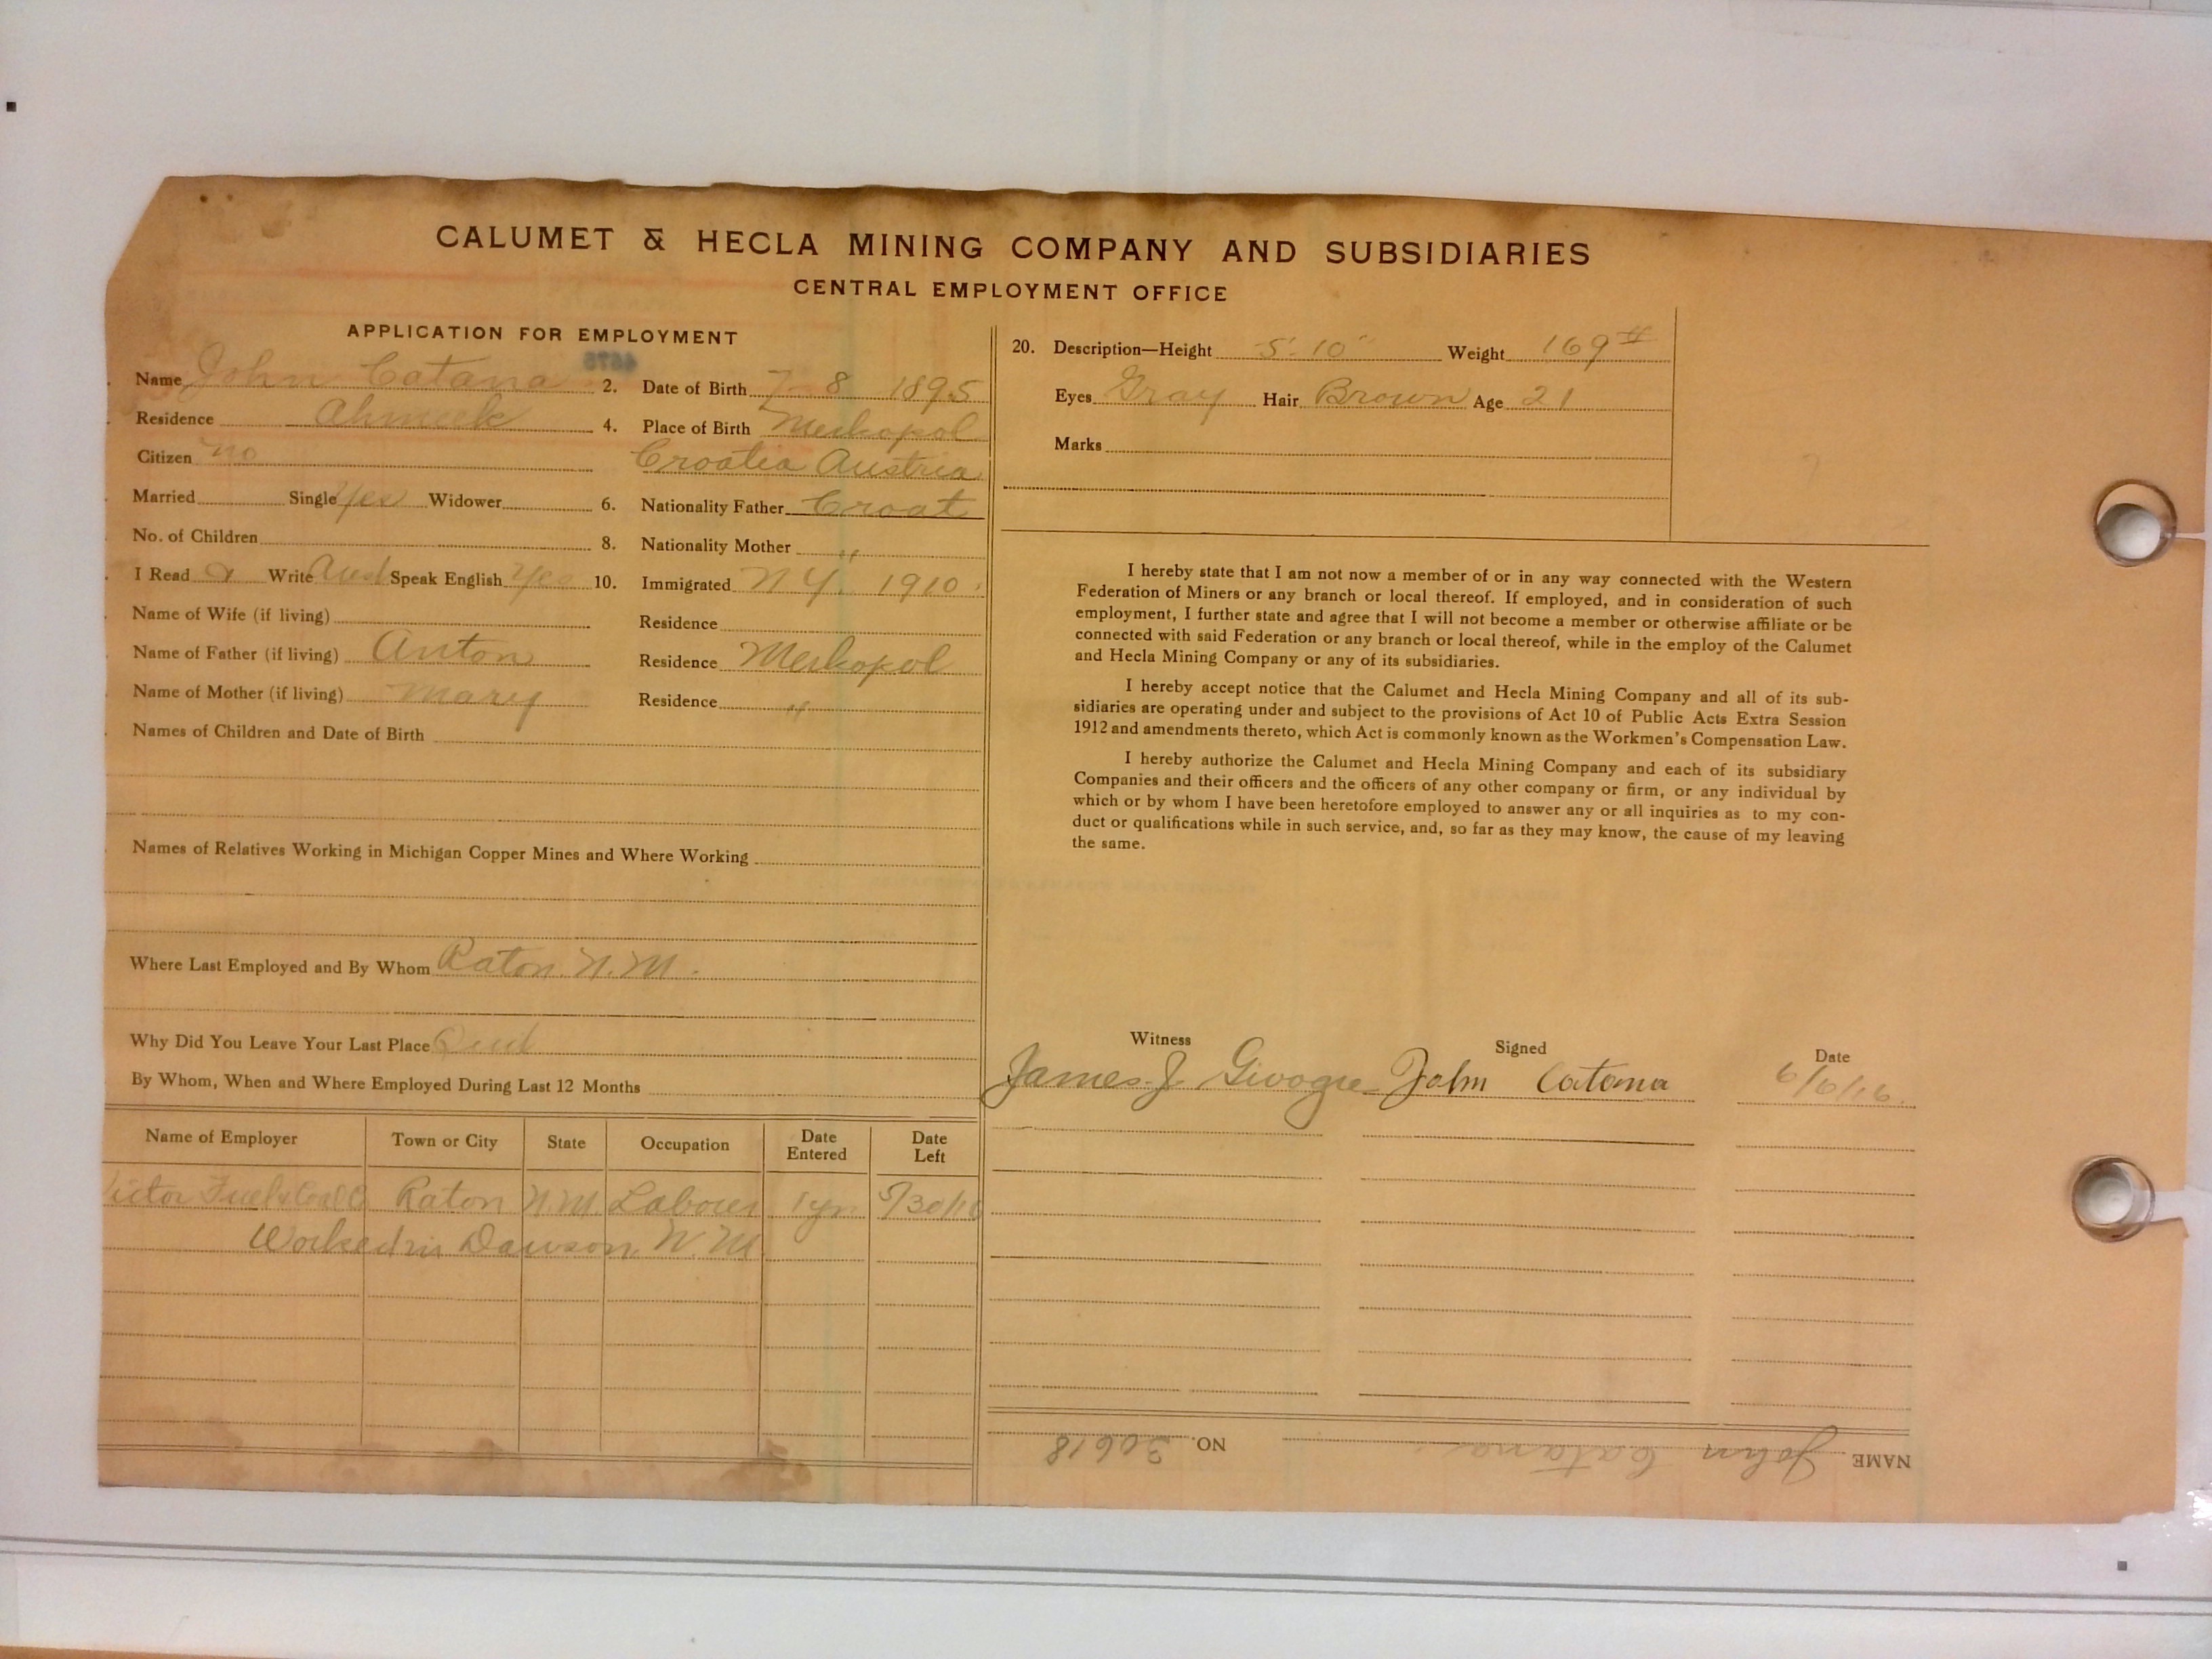 CALUMET & HECLA MINING COMPANY AND SUBSIDIARIES
CENTRAL EMPLOYMENT OFFICE
APPLICATION FOR EMPLOYMENT
Name John Catana 2. Date of Birth 7 8 1895
Residence Ahmeek 4. Place of Birth Merkopol
Citizen no Croatia Austria
Married Single Yes Widower 6. Nationality Father Croat
No. of Children 8. Nationality Mother "
I Read & Write Aust Speak English Yes 10. Immigrated N.Y. 1910.
Name of Wife (if living) Residence
Name of Father (if living) Anton Residence Merkopol
Name of Mother (if living) Mary Residence "
Names of Children and Date of Birth
Names of Relatives Working in Michigan Copper Mines and Where Working
Where Last Employed and By Whom Raton. N.M.
Why Did You Leave Your Last Place Quit
By Whom, When and Where Employed During Last 12 Months
Name of Employer Town or City State Occupation Date Entered Date Left
Victor Fuel & Coal Co Raton N.M. Laborer 1 yr. 5/30/16
Worked in Dawson N.M
20. Description—Height 5'-10" Weight 169 #
Eyes Gray Hair Brown Age 21
Marks
I hereby state that I am not now a member of or in any way connected with the Western
Federation of Miners or any branch or local thereof. If employed, and in consideration of such
employment, I further state and agree that I will not become a member or otherwise affiliate or be
connected with said Federation or any branch or local thereof, while in the employ of the Calumet
and Hecla Mining Company or any of its subsidiaries.
I hereby accept notice that the Calumet and Hecla Mining Company and all of its sub-
sidiaries are operating under and subject to the provisions of Act 10 of Public Acts Extra Session
1912 and amendments thereto, which Act is commonly known as the Workmen's Compensation Law.
I hereby authorize the Calumet and Hecla Mining Company and each of its subsidiary
Companies and their officers and the officers of any other company or firm, or any individual by
which or by whom I have been heretofore employed to answer any or all inquiries as to my con-
duct or qualifications while in such service, and, so far as they may know, the cause of my leaving
the same.
Witness Signed Date
James J. John Catana 6/6/16.
NAME John Catana NO. 30618